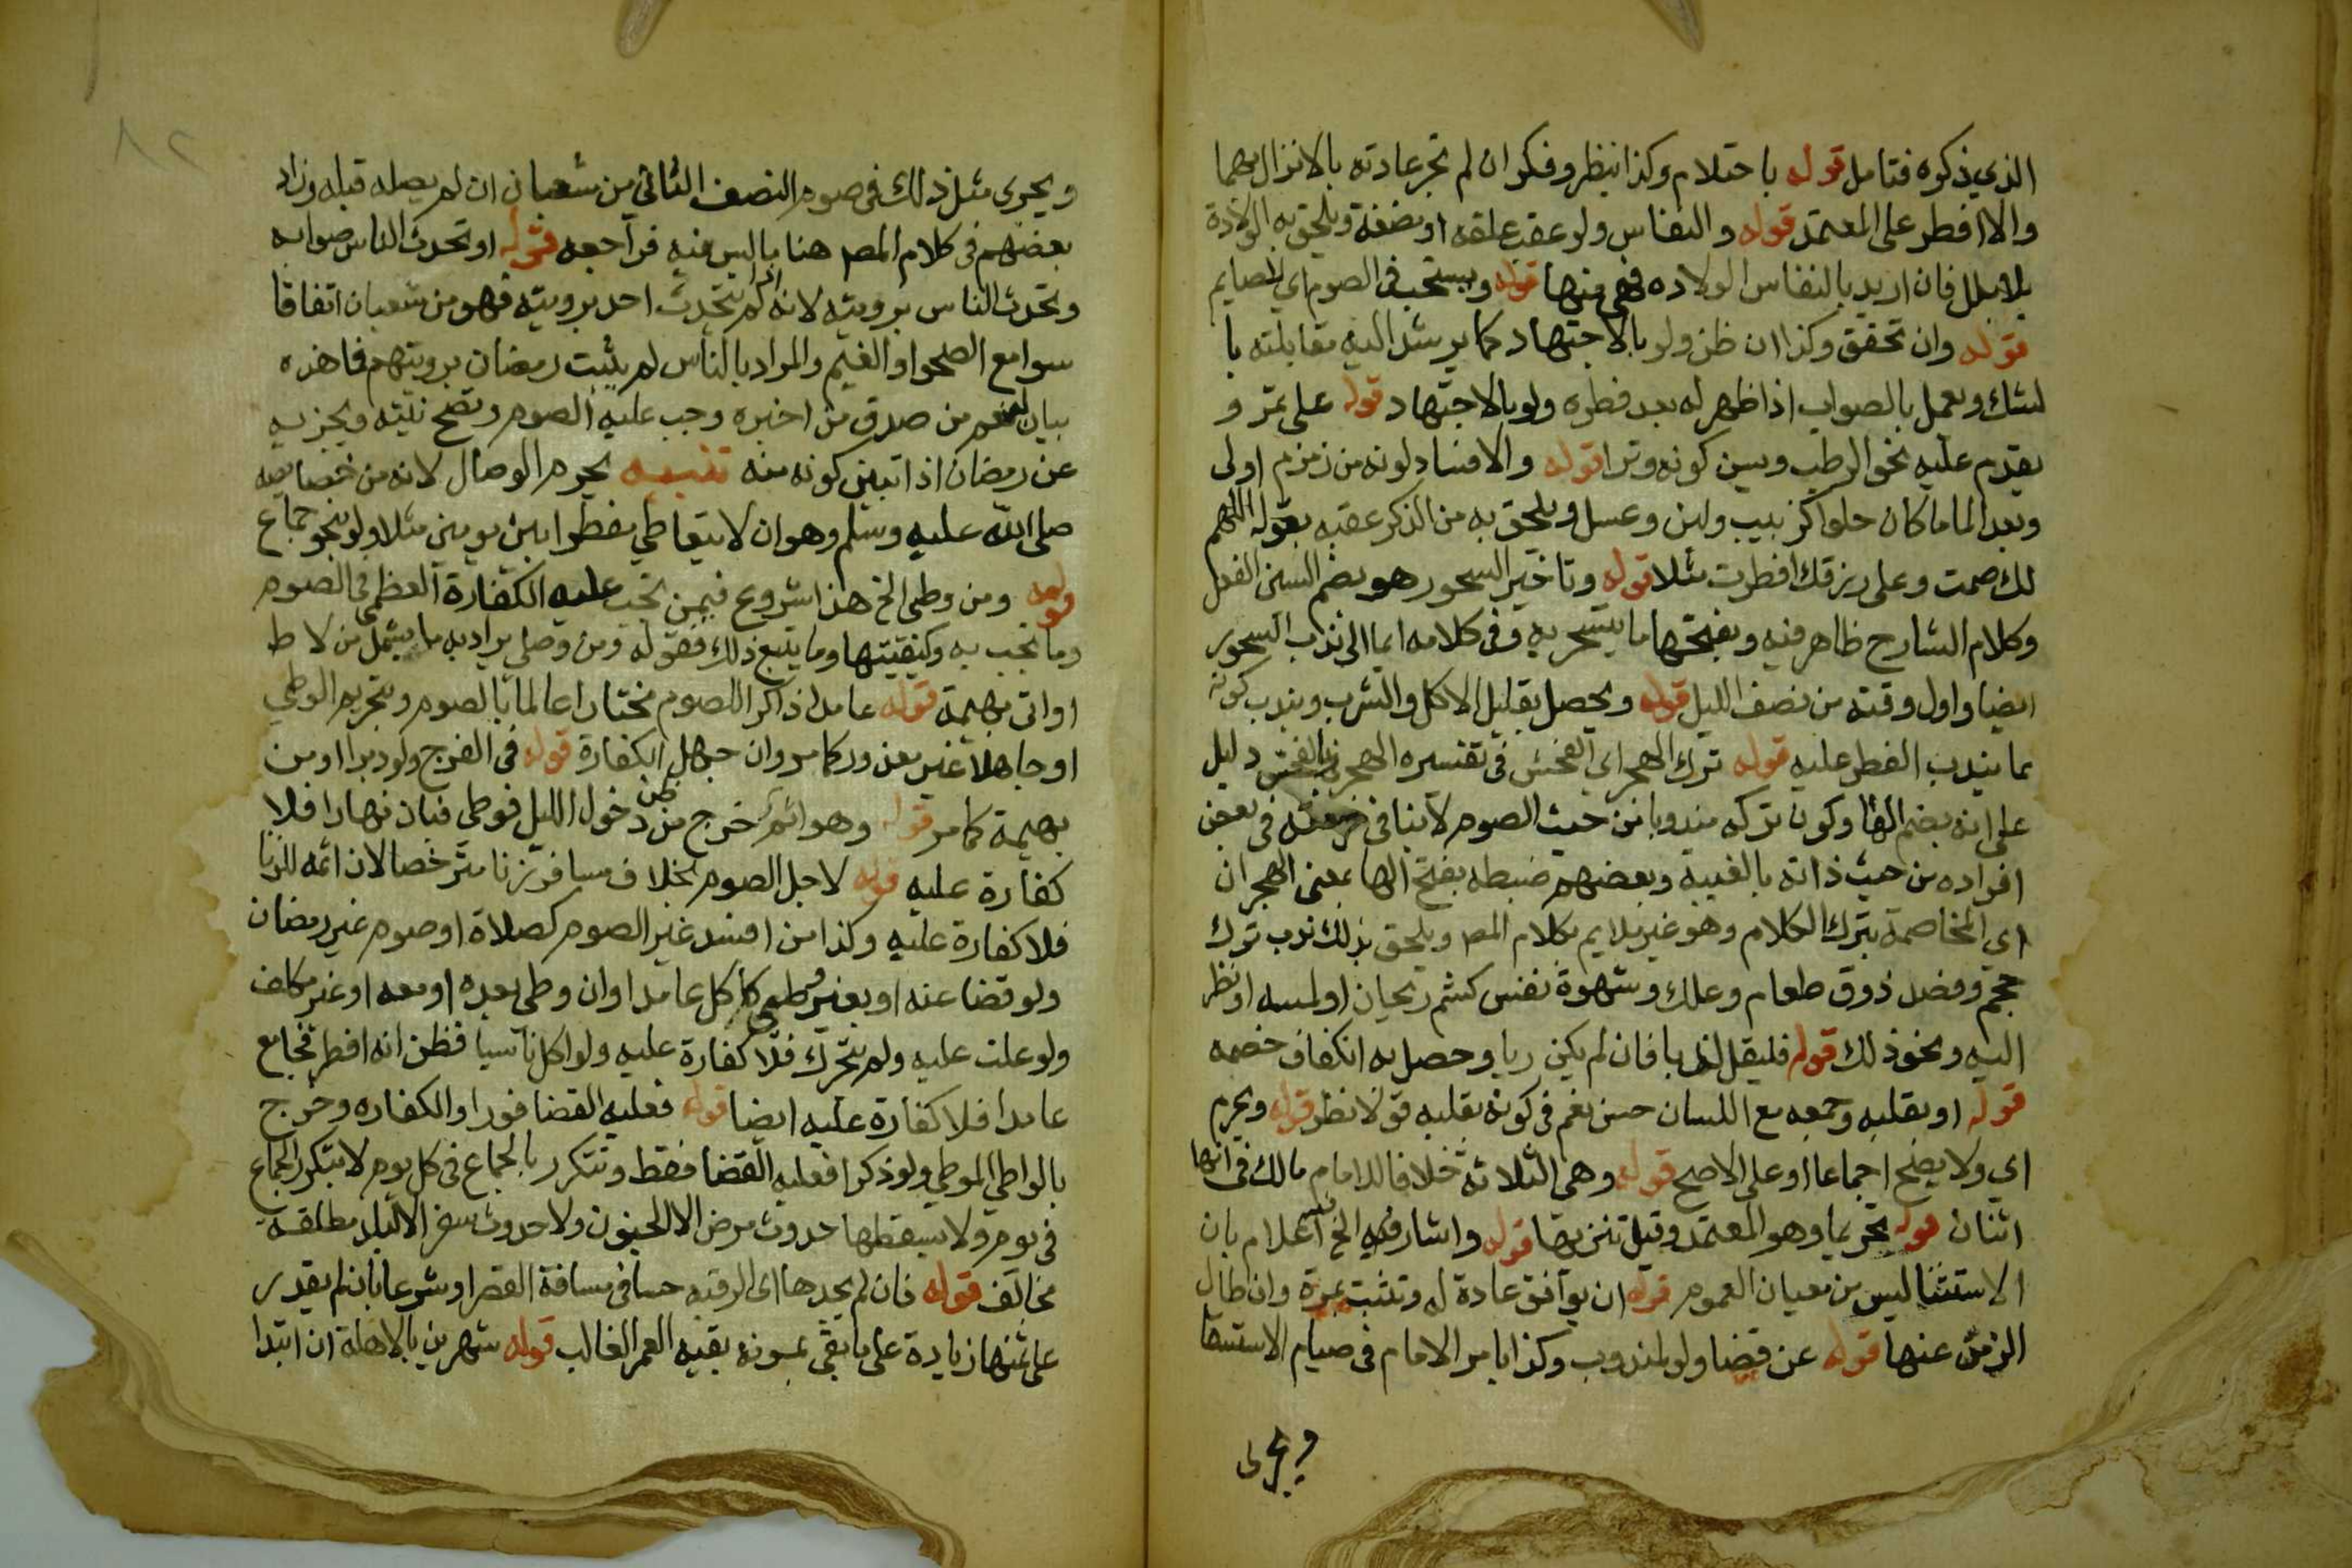 الذي ذكره فتامل قوله باحتلام وكذا بنظر وفكر ان لم تجر عادته بالانزال بهما
والا افطر على المعتمد قوله والنفاس ولو عقب علقه او مضغة ويلحق به الولادة
بلا بلل فان اريد بالنفاس الولاده فهي منها قوله ويستحب في الصوم اي للصايم
قوله وان تحقق وكذا ان ظن ولو بالاجتهاد كما يرشد اليه مقابلته با
لشك ويعمل بالصواب اذا ظهر له بعد فطره ولو بالاجتهاد قوله على تمر و
يقدم عليه نحو الرطب ويسن كونه وترا قوله والا فماء ولونه من زمزم اولى
وبعد الما ما كان حلوا كزبيب ولبن وعسل ويلحق به من الذكر عقبه بقوله اللهم
لك صمت وعلى رزقك افطرت مثلا قوله وتاخير السحور هو بضم السين الفعل
وكلام الشارح ظاهر فيه وبفتحها ما يتسحر به وفي كلامه ايما الى ندب السحور
ايضا واول وقته من نصف الليل قوله ويحصل بقليل الاكل والشرب ويندب كونه
بما يندب الفطر عليه قوله ترك الهجر اي الفحش في تفسيره الهجر بالفحش دليل
على انه بضم الها وكون تركه مندوبا من حيث الصوم لا ينافي في بعض
افراده من حيث ذاته بالغيبة وبعضهم ضبطه بفتح الها بمعنى الهجران
اي المخاصمة بترك الكلام وهو غير ملايم بكلام المص ويلحق بذلك ندب ترك
حجم وفصد ذوق طعام وعلك وشهوة نفس كشم ريحان او لمسه او نظر
اليه ونحو ذلك قوله فليقل لذبا فان لم يكن ريا وحصل به انكفاف خصمه
قوله او بقلبه وجمعه مع اللسان حسن نعم في كونه بقلبه قولا نظر قوله ويحرم
اي ولا يصح اجماعا او على الاصح قوله وهي الثلاثة خلافا للامام مالك في انها
اثنان قوله تحريما وهو المعتمد وقيل تنزيها قوله واشار فيه الخ اعلام بان
الاستثنا ليس من معيان العموم قوله ان يوافق عادة له وتثبت بمرة وان طال
الزمن عنها قوله عن قضا ولو لمندوب وكذا بامر الامام في صيام الاستسقا
ويجرى
٨٢
ويجرى مثل ذلك في صوم النصف الثاني من شعبان ان لم يصله قبله وزاد
بعضهم في كلام المص هنا ما ليس منه فراجعه قوله او تحدث الناس صوابه
وتحدث الناس برويته لانه اذا لم يتحدث احد برويته فهو من شعبان اتفاقا
سوا مع الصحو او الغيم والمراد بالناس لم يثبت رمضان برويتهم فاهذه
بيان نعم من صدق من اخبره وجب عليه الصوم وتصح نيته ويجزيه
عن رمضان اذا تبين كونه منه تنبيه يحرم الوصال لانه من خصايصه
صلى الله عليه وسلم وهو ان لا يتعاطي مفطرا بين يومين مثلا ولو بنحو جماع
قوله ومن وطي الخ هذا شروع فيمن تجب عليه الكفارة العظمى في الصوم
وما تجب به وكيفيتها وما يتبع ذلك فقوله ومن وطي يراد به ما يشمل من لاط
او اتى بهيمة قوله عامدا ذاكرا للصوم مختارا عالما بالصوم وتحريم الوطي
او جاهلا غير معذور كما مر وان جهل الكفارة قوله في الفرج ولو دبرا او من
بهيمة كما مر قوله وهو اثم خرج من ظن دخول الليل فوطي فبان نهارا فلا
كفارة عليه قوله لاجل الصوم بخلاف مسافر زنا مترخصا لان اثمه للزنا
فلا كفارة عليه وكذا من افسد غير الصوم كصلاة او صوم غير رمضان
ولو قضا عنه او بغير وطي كاكل عامدا وان وطي بعده او معه او غير مكلف
ولو علت عليه ولم يتحرك فلا كفارة عليه ولو اكل ناسيا فظن انه افطر فجامع
عامدا فلا كفارة عليه ايضا قوله فعليه القضا فورا والكفاره وخرج
بالواطي الموطي ولو ذكرا فعليه القضا فقط وتتكرر بالجماع في كل يوم لا بتكرر الجماع
في يوم ولا يسقطها حدوث مرض الا الجنون ولا حدوث سفر الا لبلد مطلقه
مخالف قوله فان لم يجدها اي الرقبه حسا في مسافة القصر او شرعا بان لم يقدر
على ثمنها زيادة على ما يفي بمونه بقية العمر الغالب قوله شهرين بالاهلة ان ابتدا